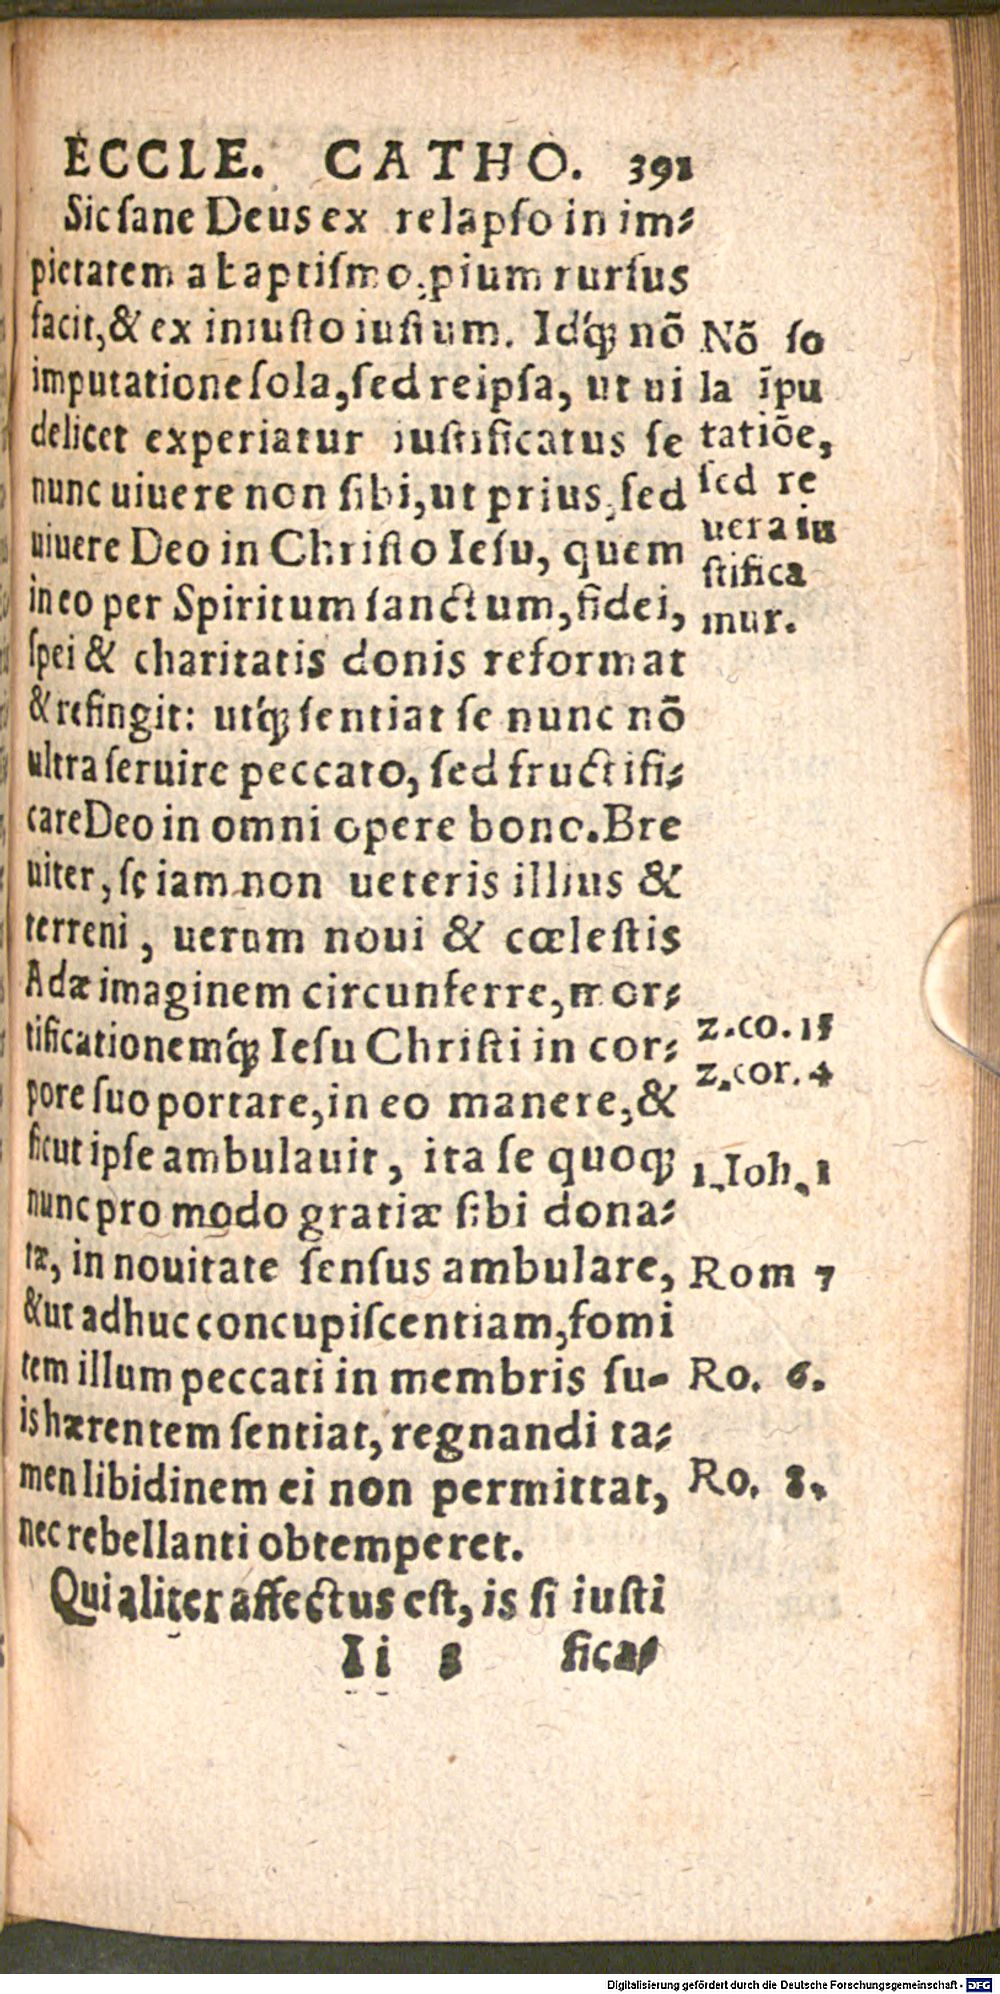 ECCLE. CATHO. 391
Sic ſane Deus ex relapſo in im⸗
pietatem a baptiſmo, pium rurſus
facit, & ex iniuſto iuſtum. Idq́; nõ
imputatione ſola, ſed reipſa, ut ui
delicet experiatur iuſtificatus ſe
nunc uiuere non ſibi, ut prius, ſed
uiuere Deo in Chriſto Ieſu, quem
in eo per Spiritum ſanctum, fidei,
ſpei & charitatis donis reformat
& refingit: utq́; ſentiat ſe nunc nõ
ultra ſeruire peccato, ſed fructifi⸗
care Deo in omni opere bono. Bre
uiter, ſę iam non ueteris illius &
terreni, uerum noui & cœleſtis
Adæ imaginem circunferre, mor⸗
tificationemq́; Ieſu Chriſti in cor⸗
pore ſuo portare, in eo manere, &
ſicut ipſe ambulauit, ita ſe quoq;
nunc pro modo gratiæ ſibi dona⸗
tæ, in nouitate ſenſus ambulare,
& ut adhuc concupiſcentiam, fomi
tem illum peccati in membris ſu-
is hærentem ſentiat, regnandi ta⸗
men libidinem ei non permittat,
nec rebellanti obtemperet.
Qui aliter affectus eſt, is ſi iuſti
Ii 3 fica⸗
Nõ ſo
la ĩpu
tatiõe,
ſed re
uera iu
ſtifica
mur.
2.co.15
2.cor.4
1.Ioh.1
Rom 7
Ro. 6.
Ro. 8.
Digitalisierung gefördert durch die Deutsche Forschungsgemeinschaft - DFG